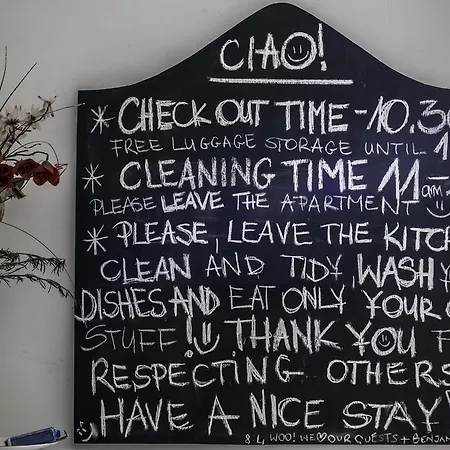 CIAO!
* CHECK OUT TIME - 10.30
FREE LUGGAGE STORAGE UNTIL 1
* CLEANING TIME 11 am -
PLEASE LEAVE THE APARTMENT
* PLEASE, LEAVE THE KITCH
CLEAN AND TIDY, WASH Y
DISHES AND EAT ONLY YOUR O
STUFF! THANK YOU F
RESPECTING OTHERS
HAVE A NICE STAY!
WE ♥ OUR GUESTS + BENJAM